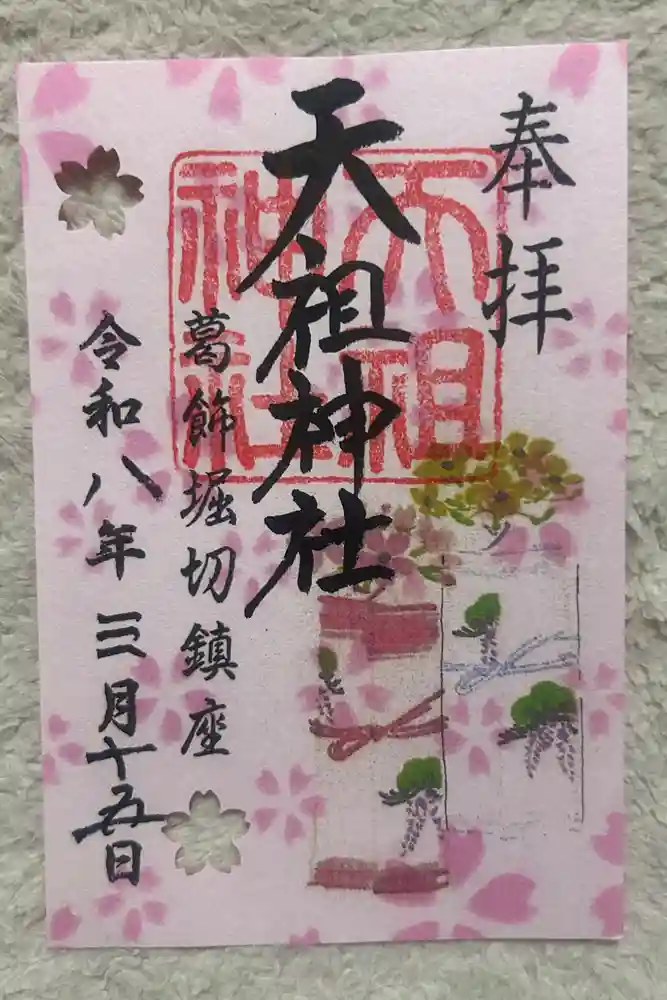 奉拝
天祖神社
天祖
神社
葛飾堀切鎮座
令和八年三月十五日